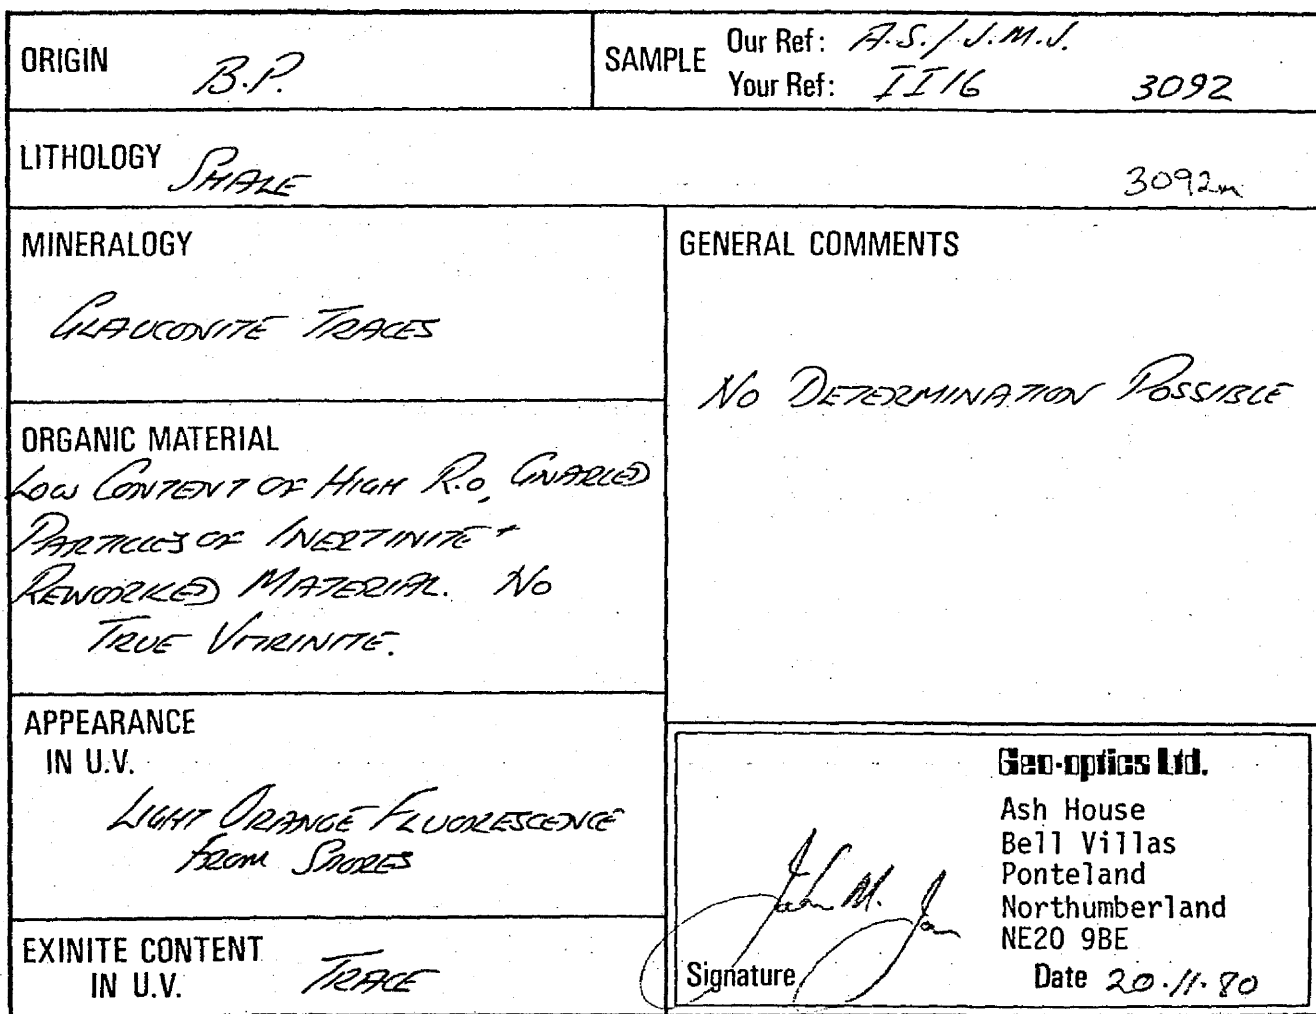 ORIGIN B.P.
SAMPLE Our Ref: A.S./J.M.J.
Your Ref: II16 3092
LITHOLOGY SHALE 3092m
MINERALOGY
GLAUCONITE TRACES
ORGANIC MATERIAL
LOW CONTENT OF HIGH R.O, GNARLED
PARTICLES OF INERTINITE +
REWORKED MATERIAL. NO
TRUE VITRINITE.
APPEARANCE
IN U.V.
LIGHT ORANGE FLUORESCENCE
FROM SPORES
EXINITE CONTENT
IN U.V. TRACE
GENERAL COMMENTS
NO DETERMINATION POSSIBLE
Geo-optics Ltd.
Ash House
Bell Villas
Ponteland
Northumberland
NE20 9BE
John M.
Signature
Date 20.11.80